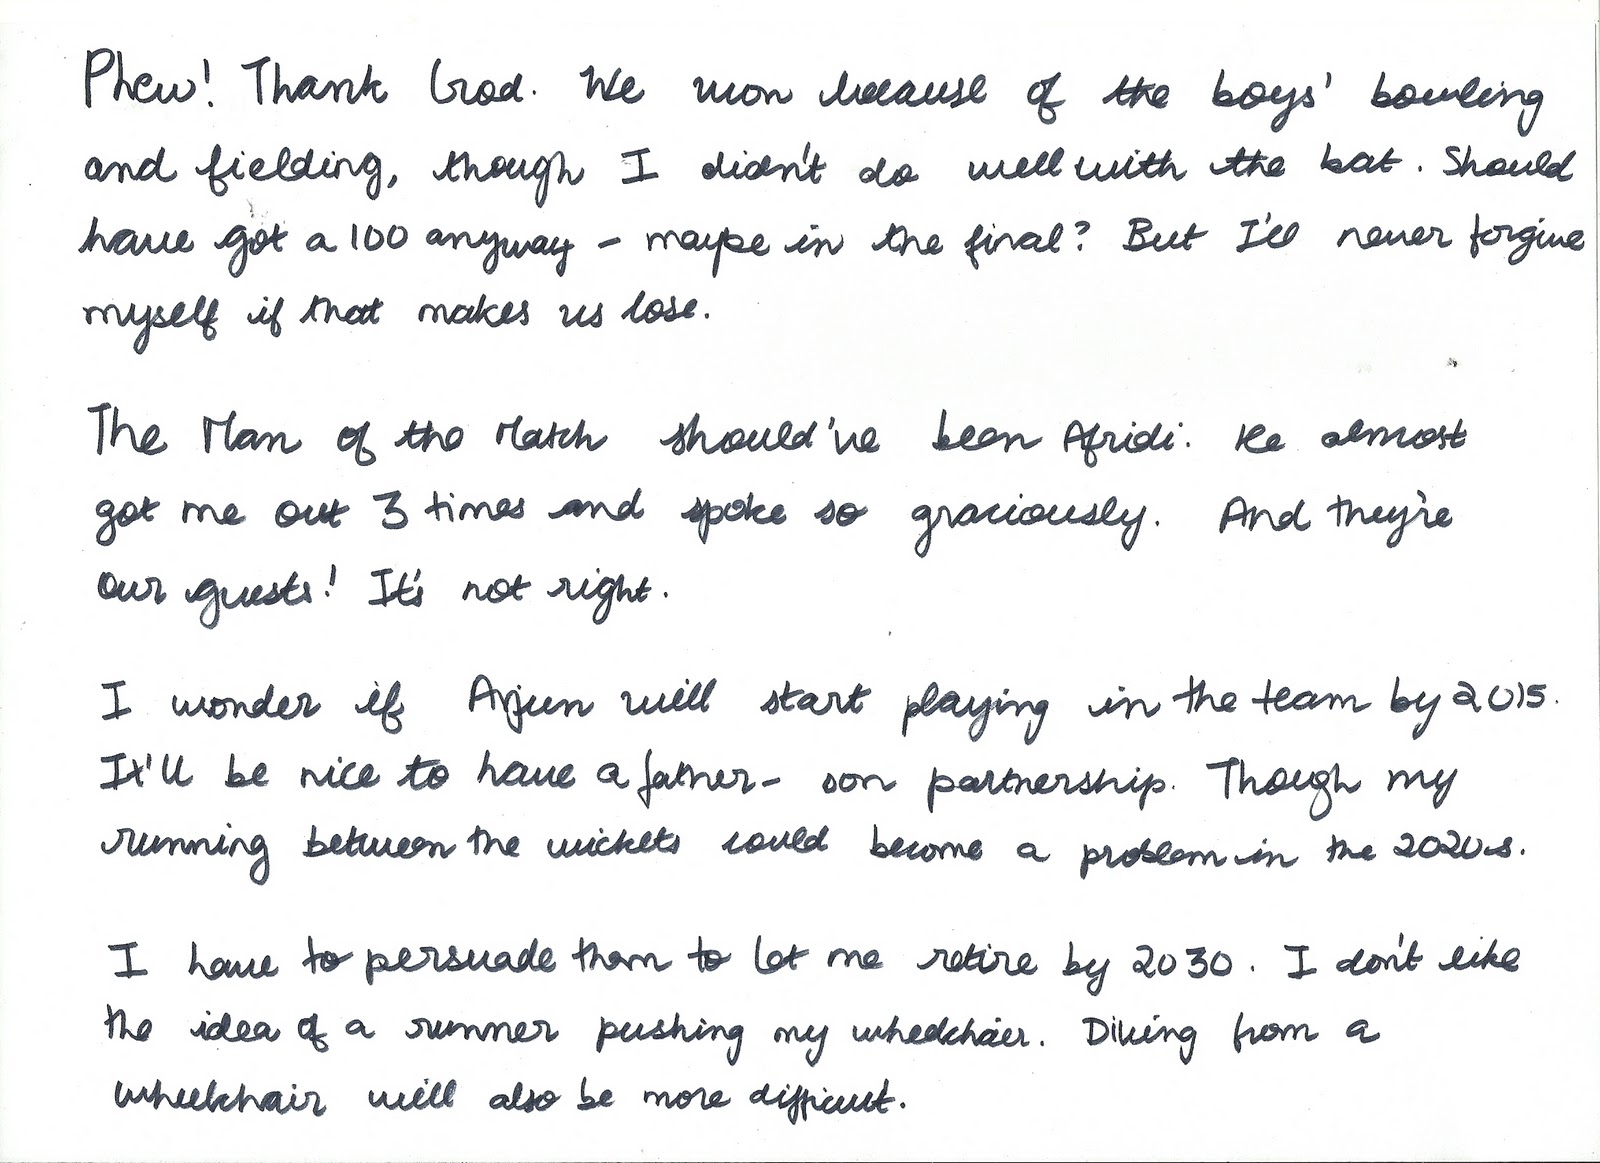 Phew! Thank God. We won because of the boys' bowling
and fielding, though I didn't do well with the bat. Should
have got a 100 anyway - maybe in the final? But I'll never forgive
myself if that makes us lose.
The Man of the Match should've been Afridi. He almost
got me out 3 times and spoke so graciously. And they're
our guests! It's not right.
I wonder if Arjun will start playing in the team by 2015.
It'll be nice to have a father- son partnership. Though my
running between the wickets could become a problem in the 2020s.
I have to persuade them to let me retire by 2030. I don't like
the idea of a runner pushing my wheelchair. Diving from a
wheelchair will also be more difficult.